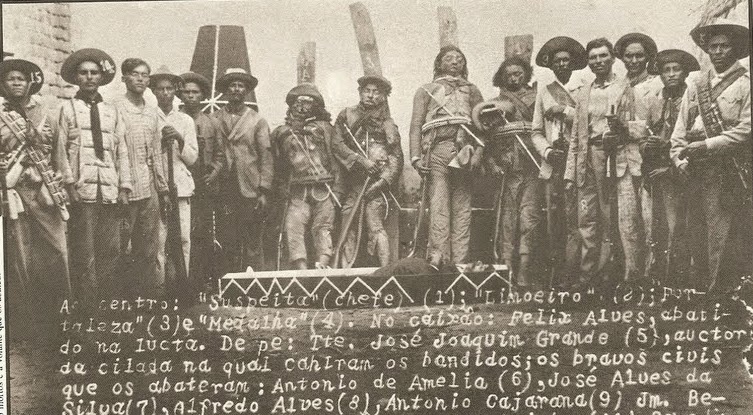 Ao centro: "Suspeita" (chefe) (1); "Limoeiro" (2); For-
taleza" (3) e "Medalha" (4). No caixão: Felix Alves, abati-
do na lucta. De pe: Tte. José Joaquim Grande (5), auctor
da cilada na qual cahiram os bandidos; os bravos civis
que os abateram: Antonio de Amelia (6), José Alves da
Silva (7), Alfredo Alves (8), Antonio Cajarana (9) Jm. Be-